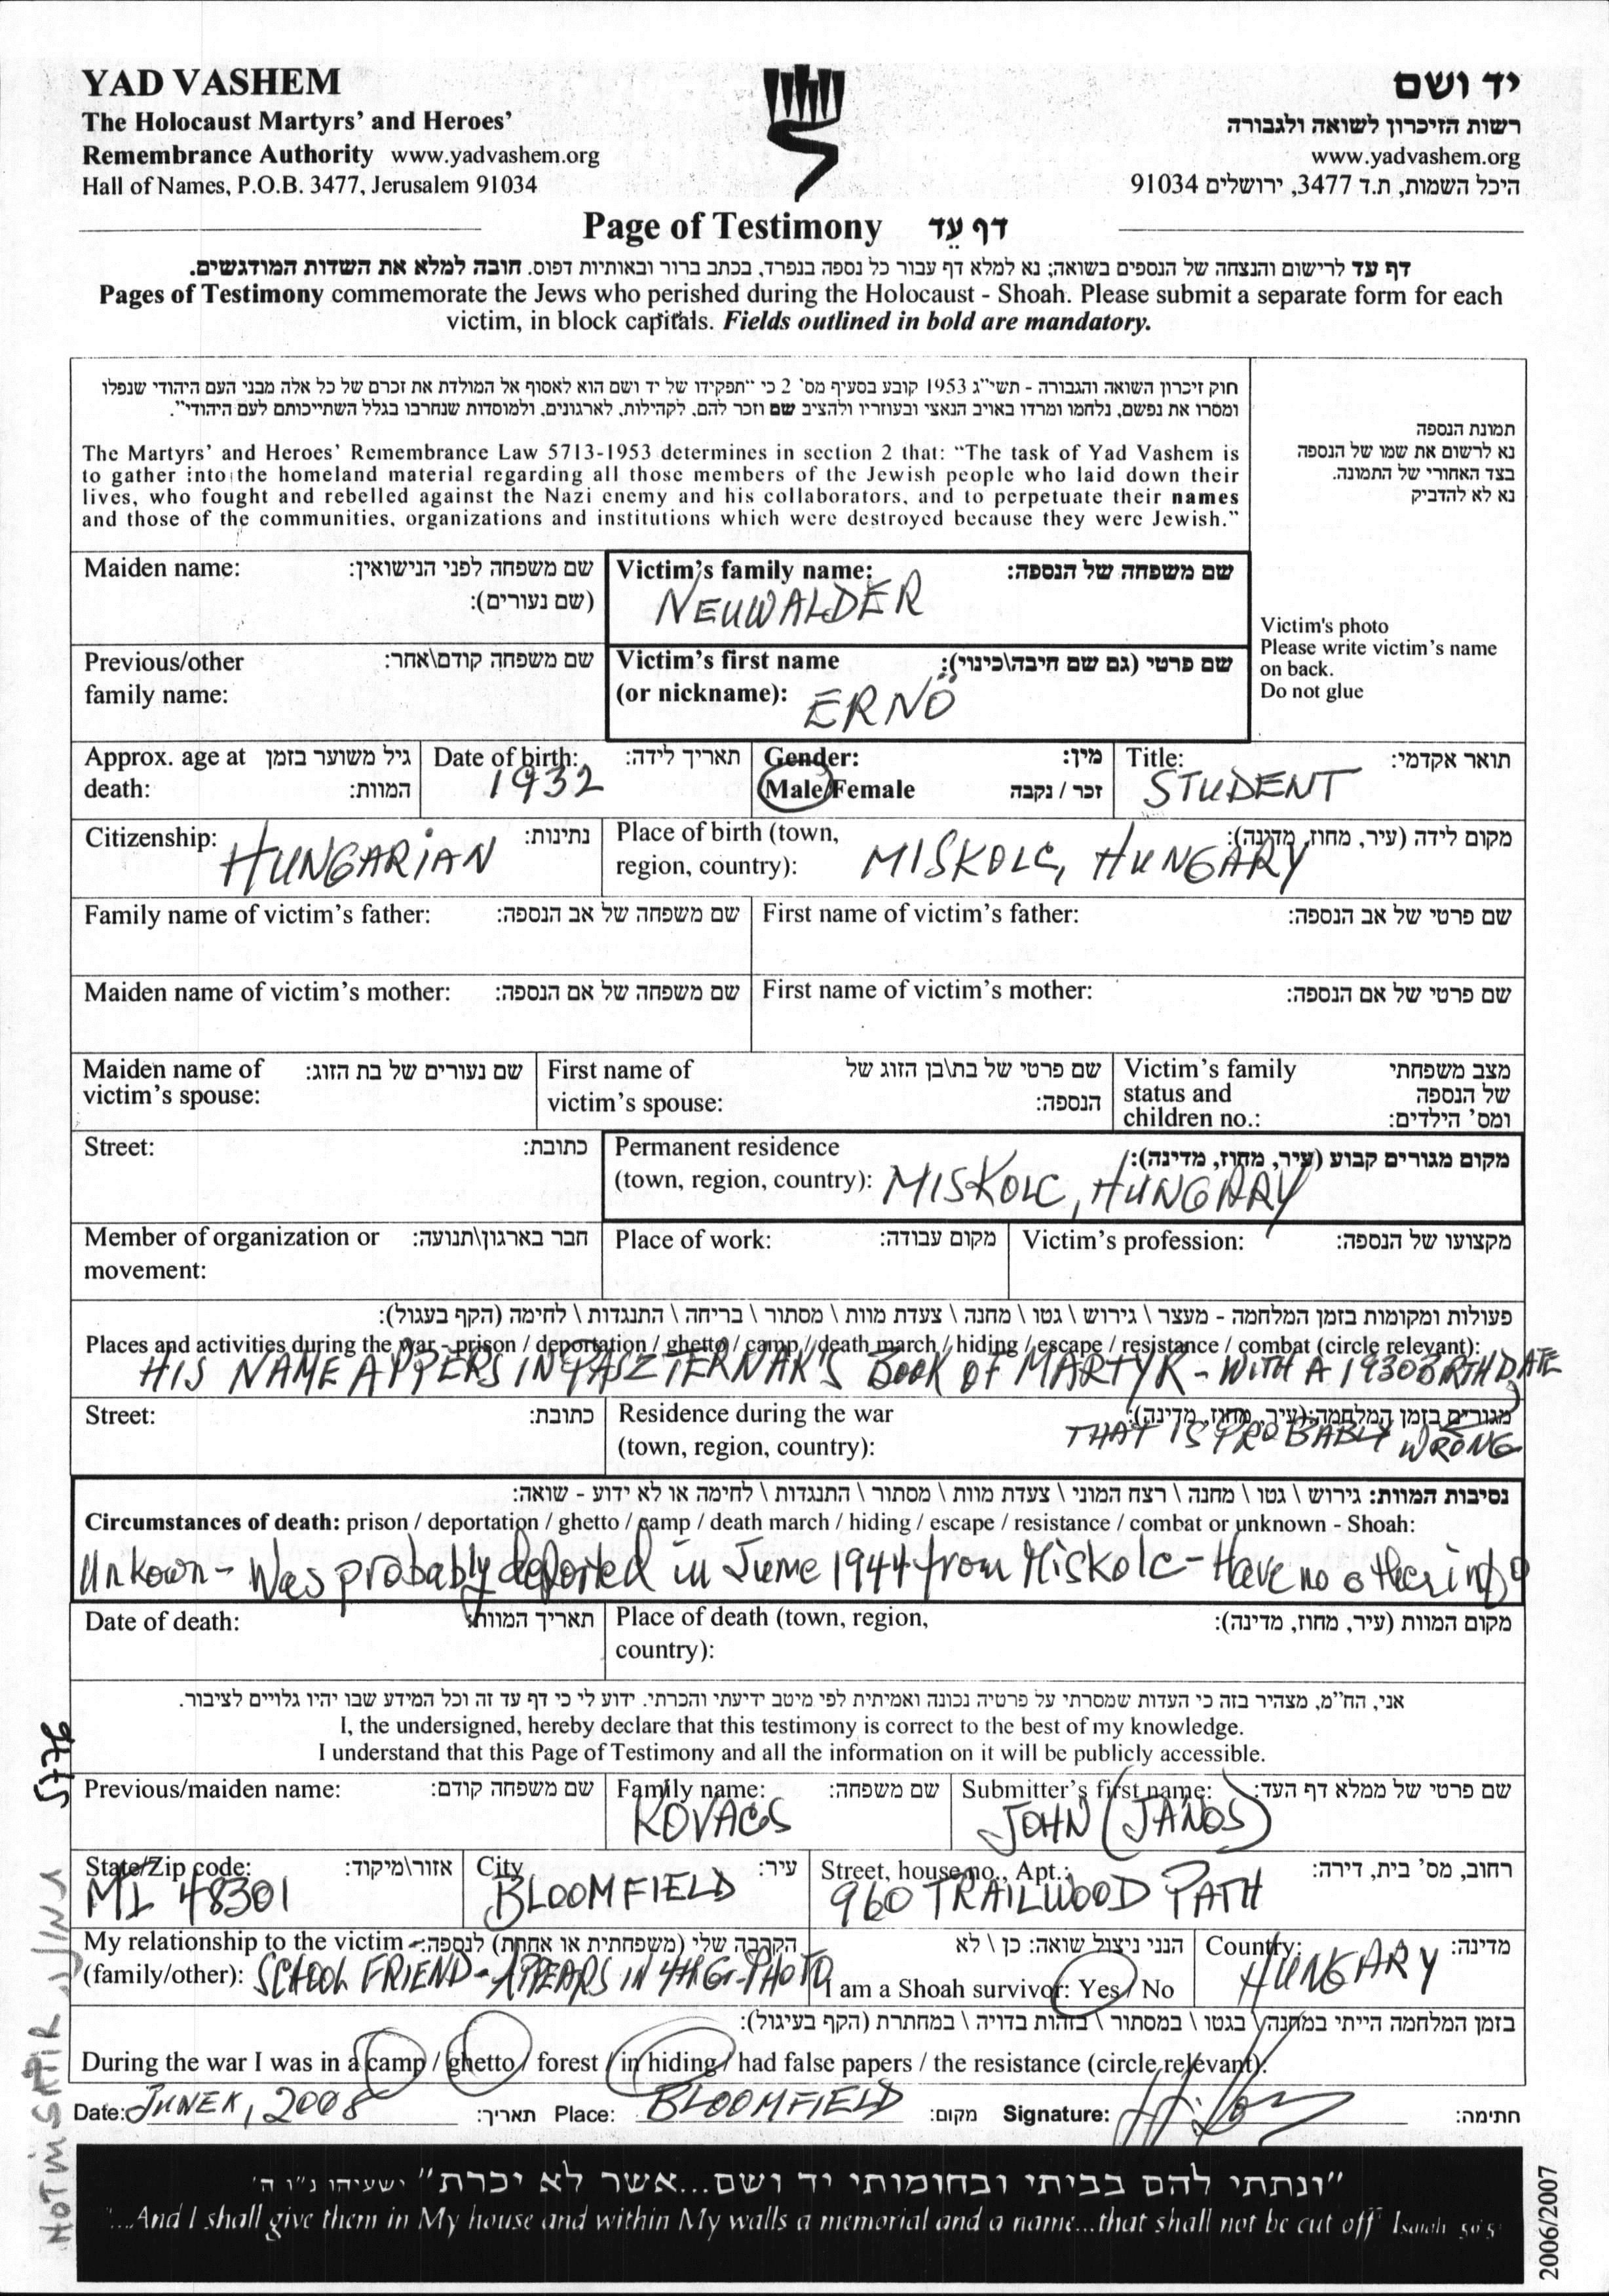 YAD VASHEM
The Holocaust Martyrs' and Heroes'
Remembrance Authority www.yadvashem.org
Hall of Names, P.O.B. 3477, Jerusalem 91034
יד ושם
רשות הזיכרון לשואה ולגבורה
www.yadvashem.org
היכל השמות, ת.ד 3477, ירושלים 91034
Page of Testimony דף עֵד
דף עד לרישום והנצחה של הנספים בשואה; נא למלא דף עבור כל נספה בנפרד, בכתב ברור ובאותיות דפוס. חובה למלא את השדות המודגשים.
Pages of Testimony commemorate the Jews who perished during the Holocaust - Shoah. Please submit a separate form for each
victim, in block capitals. Fields outlined in bold are mandatory.
חוק זיכרון השואה והגבורה - תשי"ג 1953 קובע בסעיף מס' 2 כי "תפקידו של יד ושם הוא לאסוף אל המולדת את זכרם של כל אלה מבני העם היהודי שנפלו
ומסרו את נפשם, נלחמו ומרדו באויב הנאצי ובעוזריו ולהציב שם וזכר להם, לקהילות, לארגונים, ולמוסדות שנחרבו בגלל השתייכותם לעם היהודי".
The Martyrs' and Heroes' Remembrance Law 5713-1953 determines in section 2 that: "The task of Yad Vashem is
to gather into the homeland material regarding all those members of the Jewish people who laid down their
lives, who fought and rebelled against the Nazi enemy and his collaborators, and to perpetuate their names
and those of the communities, organizations and institutions which were destroyed because they were Jewish."
תמונת הנספה
נא לרשום את שמו של הנספה
בצד האחורי של התמונה.
נא לא להדביק
Victim's photo
Please write victim's name
on back.
Do not glue
Maiden name: שם משפחה לפני הנישואין:
(שם נעורים):
Victim's family name: שם משפחה של הנספה:
NEUWALDER
Previous/other שם משפחה קודם\אחר:
family name:
Victim's first name שם פרטי (גם שם חיבה\כינוי):
(or nickname): ERNÖ
Approx. age at גיל משוער בזמן
death: המוות:
Date of birth: תאריך לידה:
1932
Gender: מין:
Male/Female זכר / נקבה
Title: תואר אקדמי:
STUDENT
Citizenship: נתינות:
HUNGARIAN
Place of birth (town, מקום לידה (עיר, מחוז, מדינה):
region, country): MISKOLC, HUNGARY
Family name of victim's father: שם משפחה של אב הנספה:
First name of victim's father: שם פרטי של אב הנספה:
Maiden name of victim's mother: שם משפחה של אם הנספה:
First name of victim's mother: שם פרטי של אם הנספה:
Maiden name of שם נעורים של בת הזוג:
victim's spouse:
First name of שם פרטי של בת\בן הזוג של
victim's spouse: הנספה:
Victim's family מצב משפחתי
status and של הנספה
children no.: ומס' הילדים:
Street: כתובת:
Permanent residence מקום מגורים קבוע (עיר, מחוז, מדינה):
(town, region, country): MISKOLC, HUNGARY
Member of organization or חבר בארגון\תנועה:
movement:
Place of work: מקום עבודה:
Victim's profession: מקצועו של הנספה:
פעולות ומקומות בזמן המלחמה - מעצר \ גירוש \ גטו \ מחנה \ צעדת מוות \ מסתור \ בריחה \ התנגדות \ לחימה (הקף בעגול):
Places and activities during the war - prison / deportation / ghetto / camp / death march / hiding / escape / resistance / combat (circle relevant):
HIS NAME APPERS IN PASZTERNAK'S BOOK OF MARTYR - WITH A 1930 BIRTH DATE
THAT IS PROBABLY WRONG
Street: כתובת:
Residence during the war מגורים בזמן המלחמה: (עיר, מחוז, מדינה):
(town, region, country):
נסיבות המוות: גירוש \ גטו \ מחנה \ רצח המוני \ צעדת מוות \ מסתור \ התנגדות \ לחימה או לא ידוע - שואה:
Circumstances of death: prison / deportation / ghetto / camp / death march / hiding / escape / resistance / combat or unknown - Shoah:
Unkown - Was probably deported in June 1944 from Miskolc - Have no other info
Date of death: תאריך המוות:
Place of death (town, region, מקום המוות (עיר, מחוז, מדינה):
country):
אני, הח"מ, מצהיר בזה כי העדות שמסרתי על פרטיה נכונה ואמיתית לפי מיטב ידיעתי והכרתי. ידוע לי כי דף עד זה וכל המידע שבו יהיו גלויים לציבור.
I, the undersigned, hereby declare that this testimony is correct to the best of my knowledge.
I understand that this Page of Testimony and all the information on it will be publicly accessible.
Previous/maiden name: שם משפחה קודם:
Family name: שם משפחה:
KOVACS
Submitter's first name: שם פרטי של ממלא דף העד:
JOHN (JANOS)
State/Zip code: אזור\מיקוד:
MI 48301
City עיר:
BLOOMFIELD
Street, house no., Apt.: רחוב, מס' בית, דירה:
960 TRAILWOOD PATH
My relationship to the victim הקרבה שלי (משפחתית או אחרת) לנספה:
(family/other): SCHOOL FRIEND - APPEARS IN 4TH Gr. PHOTO
הנני ניצול שואה: כן \ לא
I am a Shoah survivor: Yes / No
Country: מדינה:
HUNGARY
בזמן המלחמה הייתי במחנה\ בגטו \ במסתור \ בזהות בדויה \ במחתרת (הקף בעיגול):
During the war I was in a camp / ghetto / forest / in hiding / had false papers / the resistance (circle relevant):
Date: 2008 תאריך: Place: BLOOMFIELD מקום: Signature: חתימה:
"ונתתי להם בביתי ובחומותי יד ושם...אשר לא יכרת" ישעיהו נ"ו ה'
"...And I shall give them in My house and within My walls a memorial and a name...that shall not be cut off" Isaiah 56:5
2006/2007